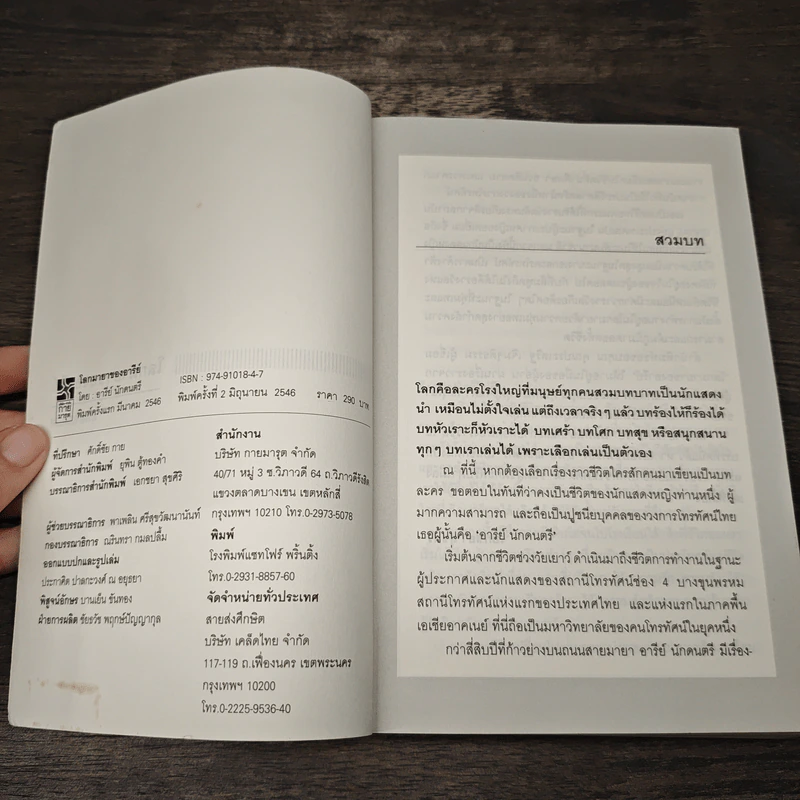 กายมารุต
โลกมายาของอารีย์
โดย : อารีย์ นักดนตรี
พิมพ์ครั้งแรก มีนาคม 2546
ISBN : 974-91018-4-7
พิมพ์ครั้งที่ 2 มิถุนายน 2546 ราคา 290 บาท
ที่ปรึกษา ศักดิ์ชัย กาย
ผู้จัดการสำนักพิมพ์ ยุพิน ตู้ทองคำ
บรรณาธิการสำนักพิมพ์ เอกชยา สุขศิริ
ผู้ช่วยบรรณาธิการ พาเพลิน ศรีสุขวัฒนานันท์
กองบรรณาธิการ ณรินทรา กมลปลื้ม
ออกแบบปกและรูปเล่ม
ประกาศิต ปาลกะวงศ์ ณ อยุธยา
พิสูจน์อักษร บานเย็น ขันทอง
ฝ่ายการผลิต ชัยธวัช พฤกษ์ปัญญากุล
สำนักงาน
บริษัท กายมารุต จำกัด
40/71 หมู่ 3 ซ.วิภาวดี 64 ถ.วิภาวดีรังสิต
แขวงตลาดบางเขน เขตหลักสี่
กรุงเทพฯ 10210 โทร.0-2973-5078
พิมพ์
โรงพิมพ์แซทโฟร์ พริ้นติ้ง
โทร.0-2931-8857-60
จัดจำหน่ายทั่วประเทศ
สายส่งศึกษิต
บริษัท เคล็ดไทย จำกัด
117-119 ถ.เฟื่องนคร เขตพระนคร
กรุงเทพฯ 10200
โทร.0-2225-9536-40
สวมบท
โลกคือละครโรงใหญ่ที่มนุษย์ทุกคนสวมบทบาทเป็นนักแสดง
นำ เหมือนไม่ตั้งใจเล่น แต่ถึงเวลาจริงๆ แล้ว บทร้องไห้ก็ร้องได้
บทหัวเราะก็หัวเราะได้ บทเศร้า บทโศก บทสุข หรือสนุกสนาน
ทุกๆ บทเราเล่นได้ เพราะเลือกเล่นเป็นตัวเอง
ณ ที่นี้ หากต้องเลือกเรื่องราวชีวิตใครสักคนมาเขียนเป็นบท
ละคร ขอตอบในทันทีว่าคงเป็นชีวิตของนักแสดงหญิงท่านหนึ่ง ผู้
มากความสามารถ และถือเป็นปูชนียบุคคลของวงการโทรทัศน์ไทย
เธอผู้นั้นคือ 'อารีย์ นักดนตรี'
เริ่มต้นจากชีวิตช่วงวัยเยาว์ ดำเนินมาถึงชีวิตการทำงานในฐานะ
ผู้ประกาศและนักแสดงของสถานีโทรทัศน์ช่อง 4 บางขุนพรหม
สถานีโทรทัศน์แห่งแรกของประเทศไทย และแห่งแรกในภาคพื้น
เอเชียอาคเนย์ ที่นี่ถือเป็นมหาวิทยาลัยของคนโทรทัศน์ในยุคหนึ่ง
กว่าสี่สิบปีที่ก้าวย่างบนถนนสายมายา อารีย์ นักดนตรี มีเรื่อง-